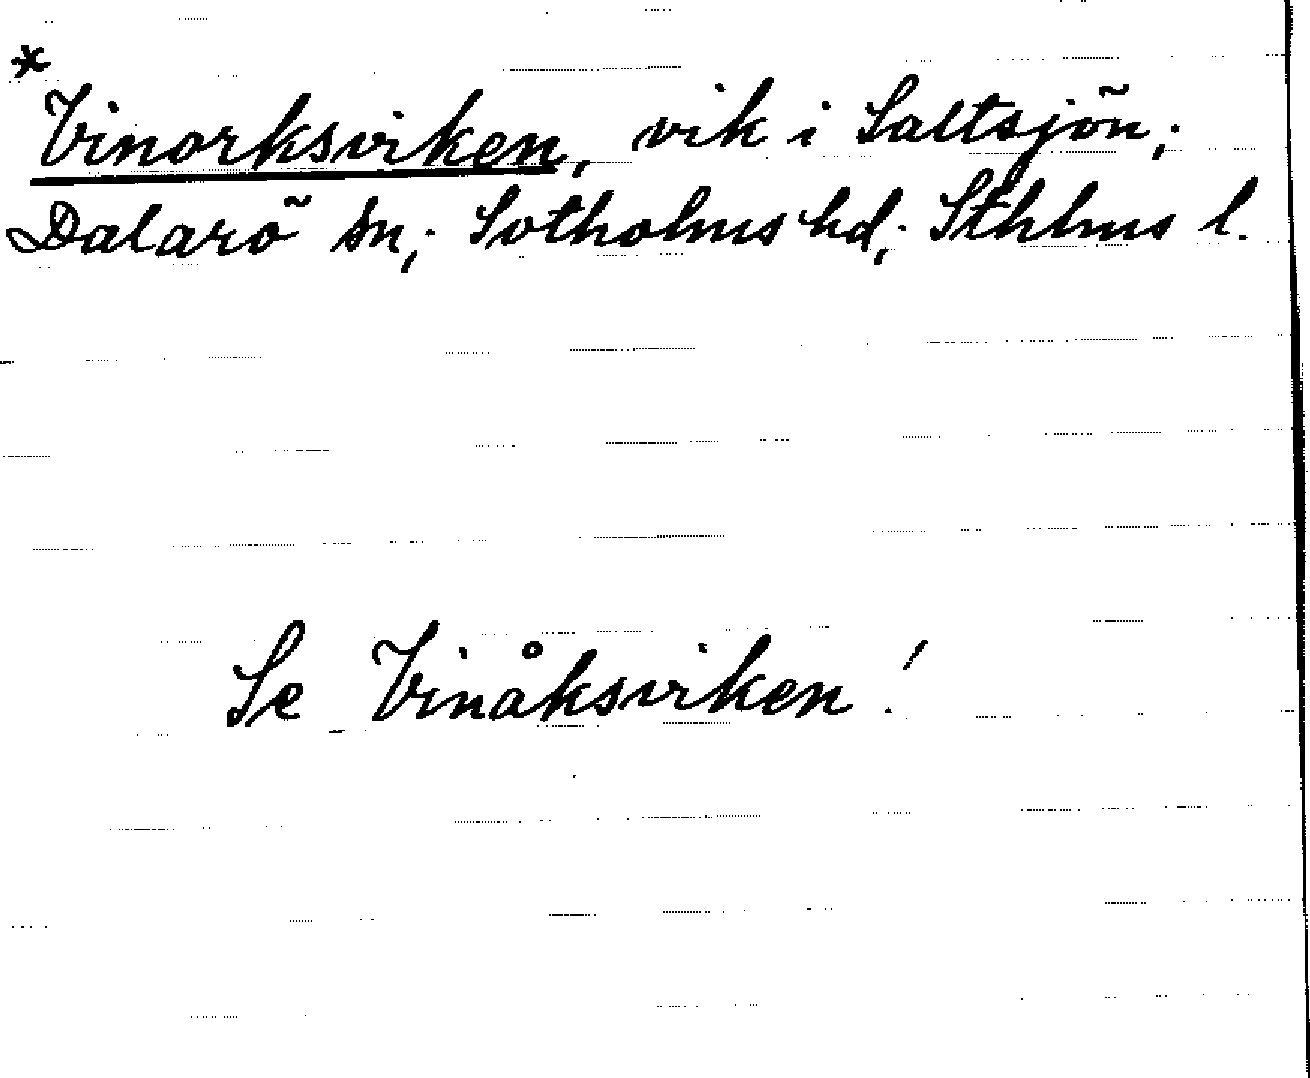 *
Vinorksviken, vik i Saltsjön;
Dalarö sn; Sotholms hd; Sthlms l.
Se Vinåksviken!